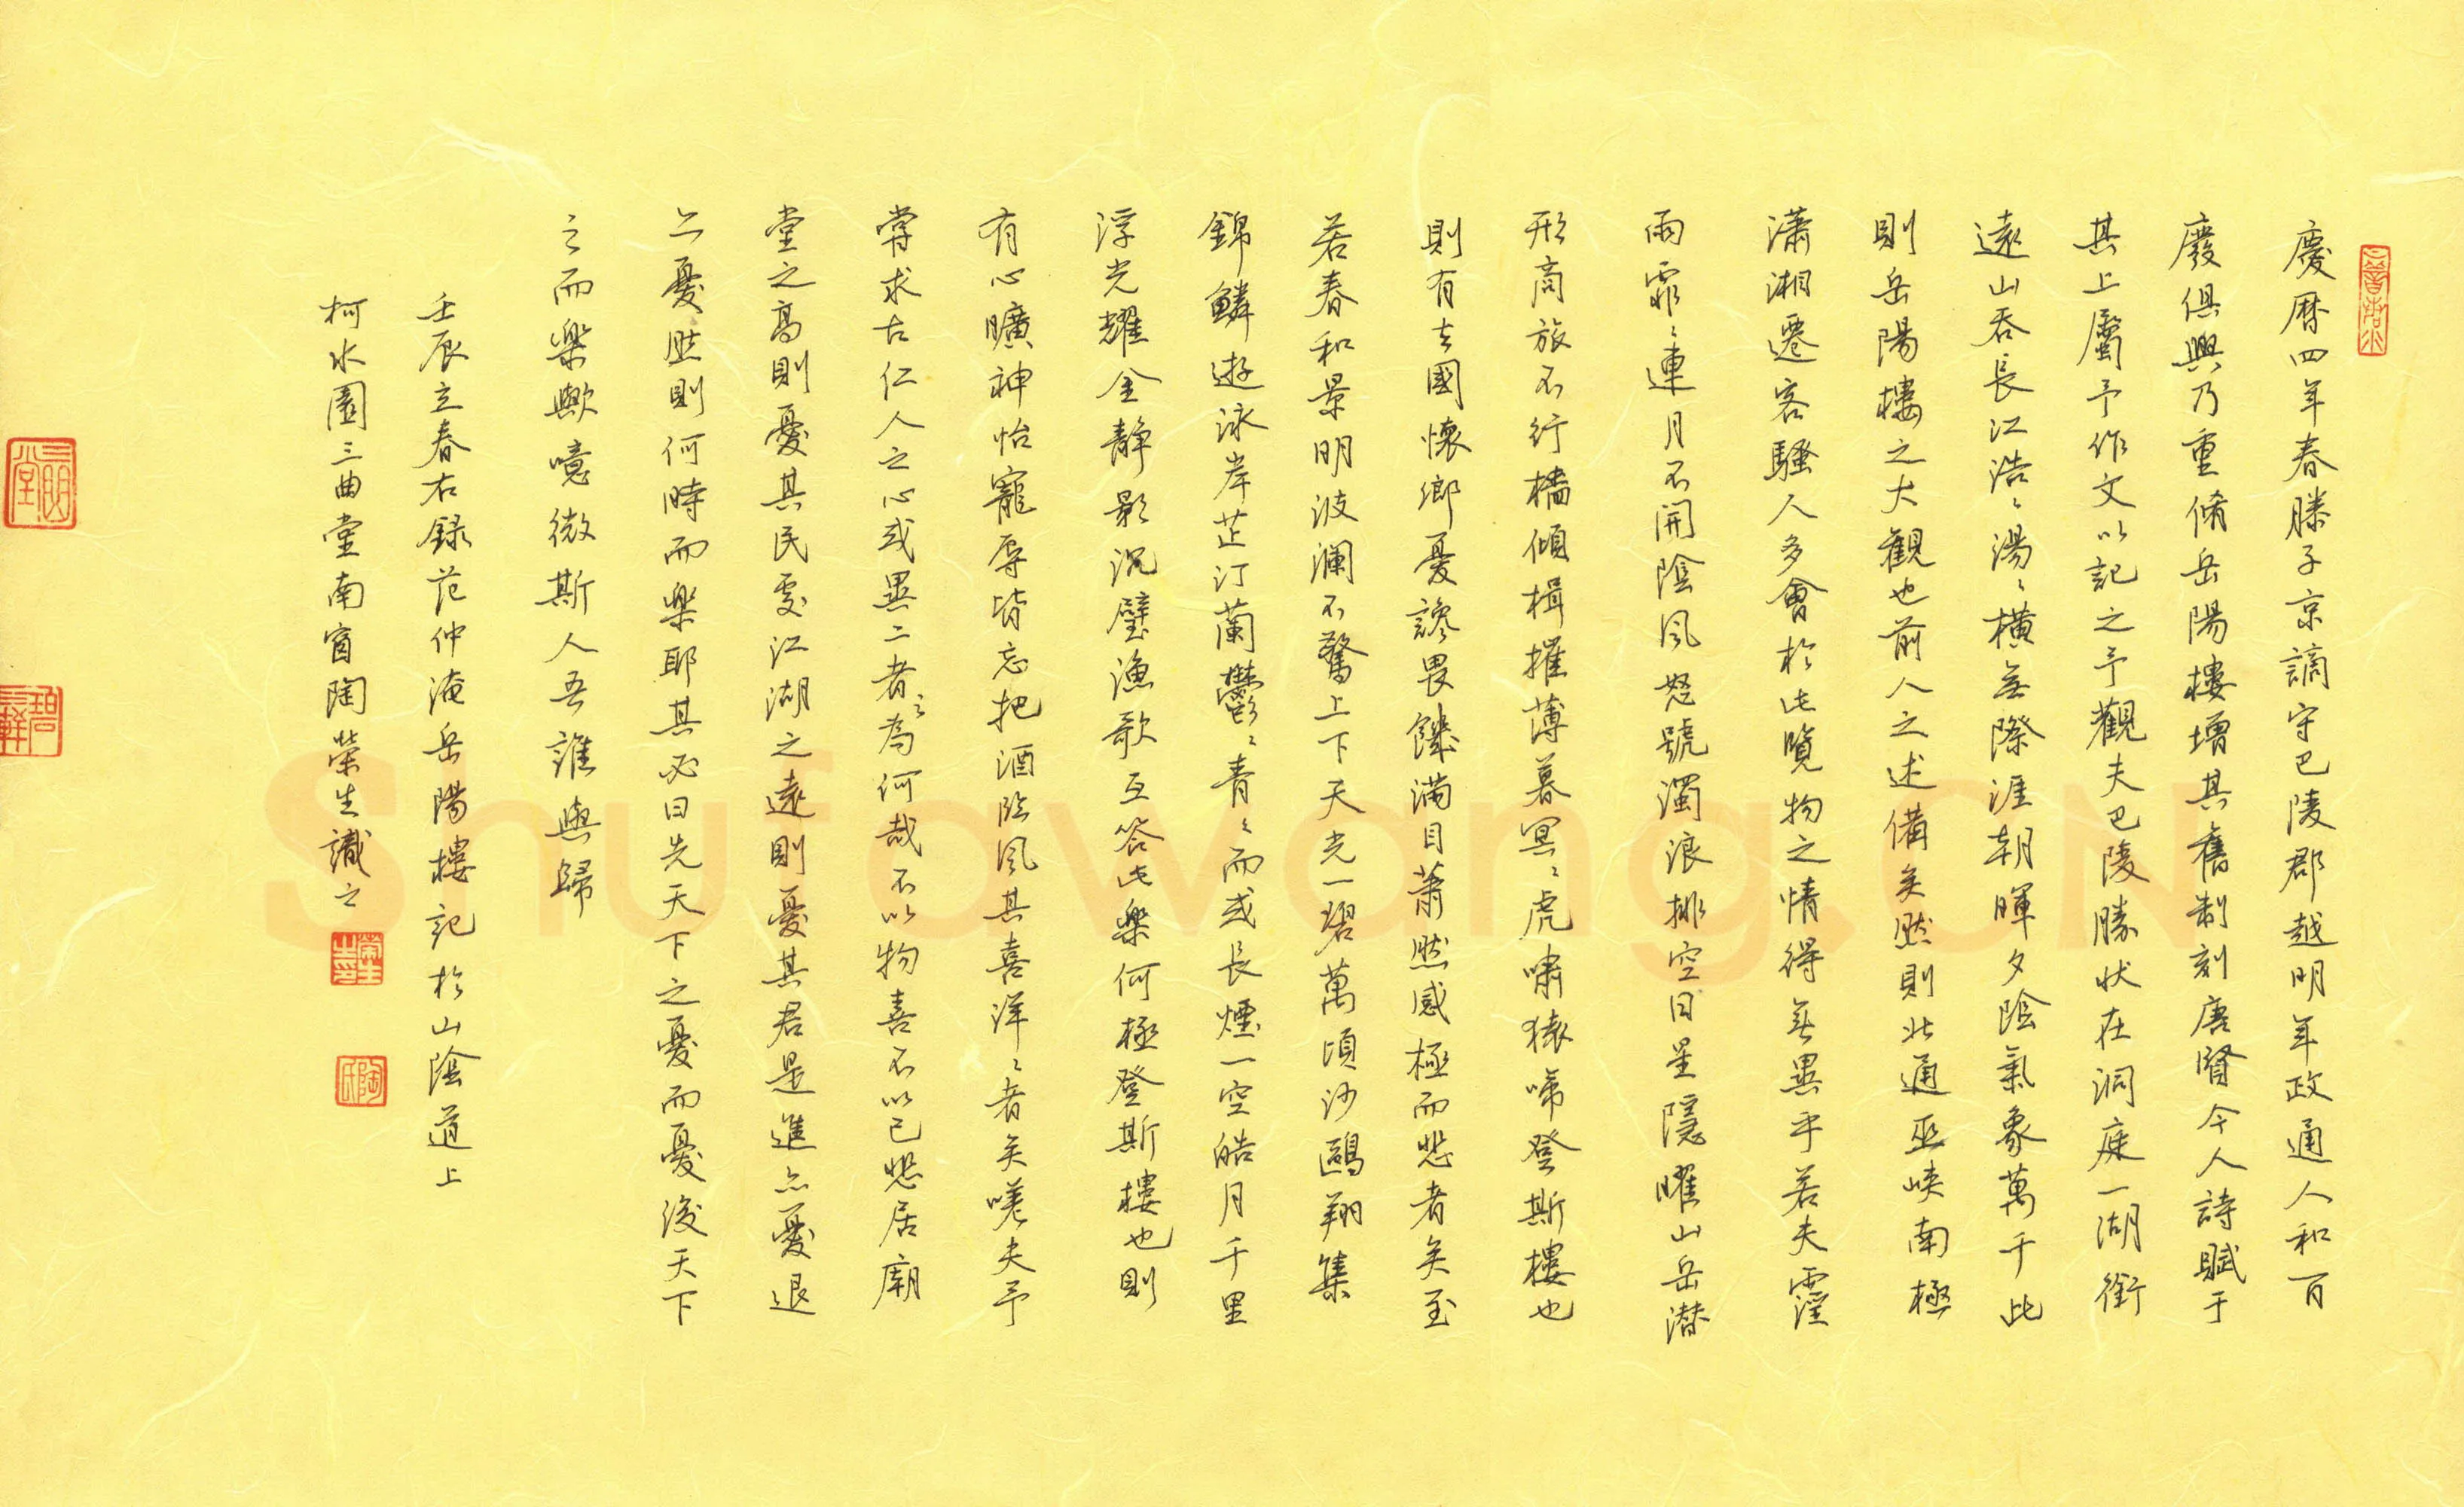 慶曆四年春滕子京謫守巴陵郡越明年政通人和百
廢俱興乃重脩岳陽樓增其舊制刻唐賢今人詩賦于
其上屬予作文以記之予觀夫巴陵勝状在洞庭一湖銜
遠山吞長江浩〻湯〻橫無際涯朝暉夕陰氣象萬千此
則岳陽樓之大觀也前人之述備矣然則北通巫峽南極
瀟湘遷客騷人多會於此覽物之情得無異乎若夫霪
雨霏〻連月不開陰風怒號濁浪排空日星隱曜山岳潜
形商旅不行檣傾楫摧薄暮冥〻虎嘯猿啼登斯樓也
則有去國懷鄉憂讒畏饑滿目蕭然感極而悲者矣至
若春和景明波瀾不驚上下天光一碧萬頃沙鷗翔集
錦鱗遊泳岸芷汀蘭鬱〻青〻而或長煙一空皓月千里
浮光耀金靜影沉璧漁歌互答此樂何極登斯樓也則
有心曠神怡寵辱皆忘把酒臨風其喜洋〻者矣嗟夫予
嘗求古仁人之心或異二者之為何哉不以物喜不以己悲居廟
堂之高則憂其民處江湖之遠則憂其君是進亦憂退
亦憂然則何時而樂耶其必曰先天下之憂而憂後天下
之而樂歟噫微斯人吾誰與歸
壬辰立春右録范仲淹岳陽樓記於山陰道上
柯水園三曲堂南窗陶榮生識之
陶氏
Shufawang.CN